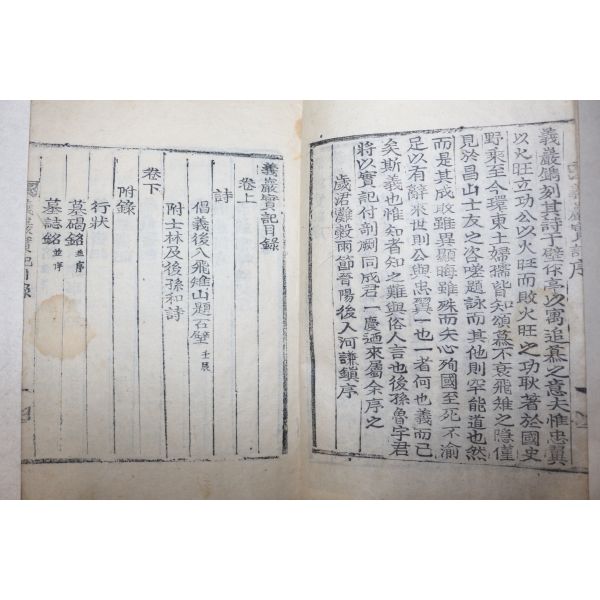 義巖鵰刻其詩于壁作亭以寓追慕之意夫惟忠翼
以火旺立功公以火旺而敗火旺之功耿著於國史
野乘至今環東土婦孺皆知頌慕不衰飛雉之隱僅
見於昌山士友之咨嗟題詠而其他則罕能道也然
而是其成敗雖異顯晦雖殊而矢心殉國至死不渝
足以有辭來世則公與忠翼一也一者何也義而已
矣斯義也惟知者知之難與俗人言也後孫魯字君
將以實記付剞劂同成君一慶迺來屬余序之
歲涒灘穀雨節晉陽後人河謙鎮序
義巖實記目錄
卷上
詩
倡義後入飛雉山題石壁 壬辰
附士林及後孫和詩
卷下
附錄
行狀
墓碣銘 並序
墓誌銘 並序
義巖實記目錄